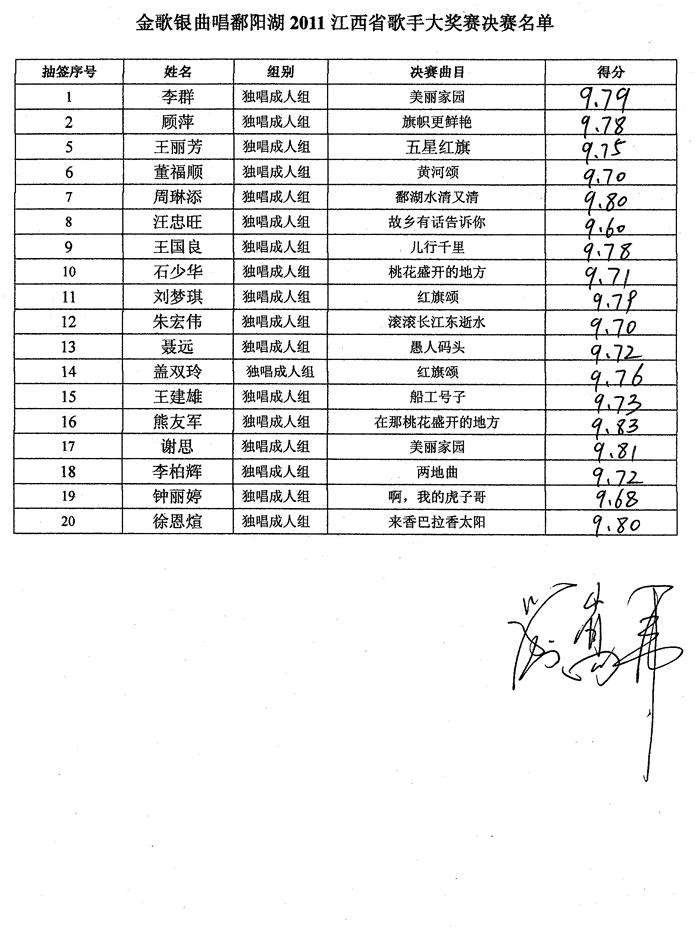 金歌银曲唱鄱阳湖 2011 江西省歌手大奖赛决赛名单
抽签序号 姓名 组别 决赛曲目 得分
1 李群 独唱成人组 美丽家园 9.79
2 顾萍 独唱成人组 旗帜更鲜艳 9.78
5 王丽芳 独唱成人组 五星红旗 9.75
6 董福顺 独唱成人组 黄河颂 9.70
7 周琳添 独唱成人组 鄱湖水清又清 9.80
8 汪忠旺 独唱成人组 故乡有话告诉你 9.60
9 王国良 独唱成人组 儿行千里 9.78
10 石少华 独唱成人组 桃花盛开的地方 9.71
11 刘梦琪 独唱成人组 红旗颂 9.79
12 朱宏伟 独唱成人组 滚滚长江东逝水 9.70
13 聂远 独唱成人组 愚人码头 9.72
14 盖双玲 独唱成人组 红旗颂 9.76
15 王建雄 独唱成人组 船工号子 9.73
16 熊友军 独唱成人组 在那桃花盛开的地方 9.83
17 谢思 独唱成人组 美丽家园 9.81
18 李柏辉 独唱成人组 两地曲 9.72
19 钟丽婷 独唱成人组 啊，我的虎子哥 9.68
20 徐恩煊 独唱成人组 来香巴拉香太阳 9.80